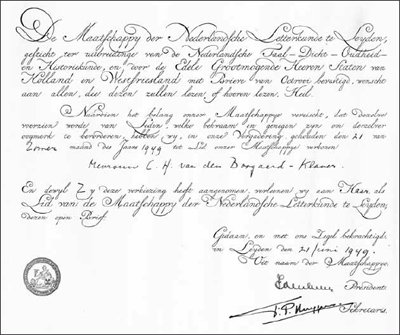 De Maatschappy der Nederlandsche Letterkunde te Leyden,
gesticht ter uitbreidinge van de Nederlandsche Taal- Dicht- Oudheid-
en Historikunde, en door de Edele Grootmogende Heeren Staten van
Holland en Westfriesland met Brieve van Octrooi bevestigd, wenscht
aan allen, die dezen zullen lezen of hooren lezen, Heil.
Nadien het belang onzer Maatschappye vereischt, dat dezelve
voorzien worde van Leden, welke bekwaam en genegen zyn om derzelver
oogmerk te bevorderen, hebben wy, in onze Vergaderinge gehouden den 21 van
Zomermaand des Jaars 1949 tot Lid onzer Maatschappye verkoren
Mevrouw C. H. van den Boogaard-Klaver.
En dewyl Zy deze verkiezing heeft aangenomen, verleenen wy aan Haar, als
Lid van de Maatschappy der Nederlandsche Letterkunde te Leyden,
dezen open Brief.
Gedaan, en met ons Zegel bekrachtigd,
in Leyden den 21 Juni 1949.
Uit naam der Maatschappye
Præsident
Secretaris.